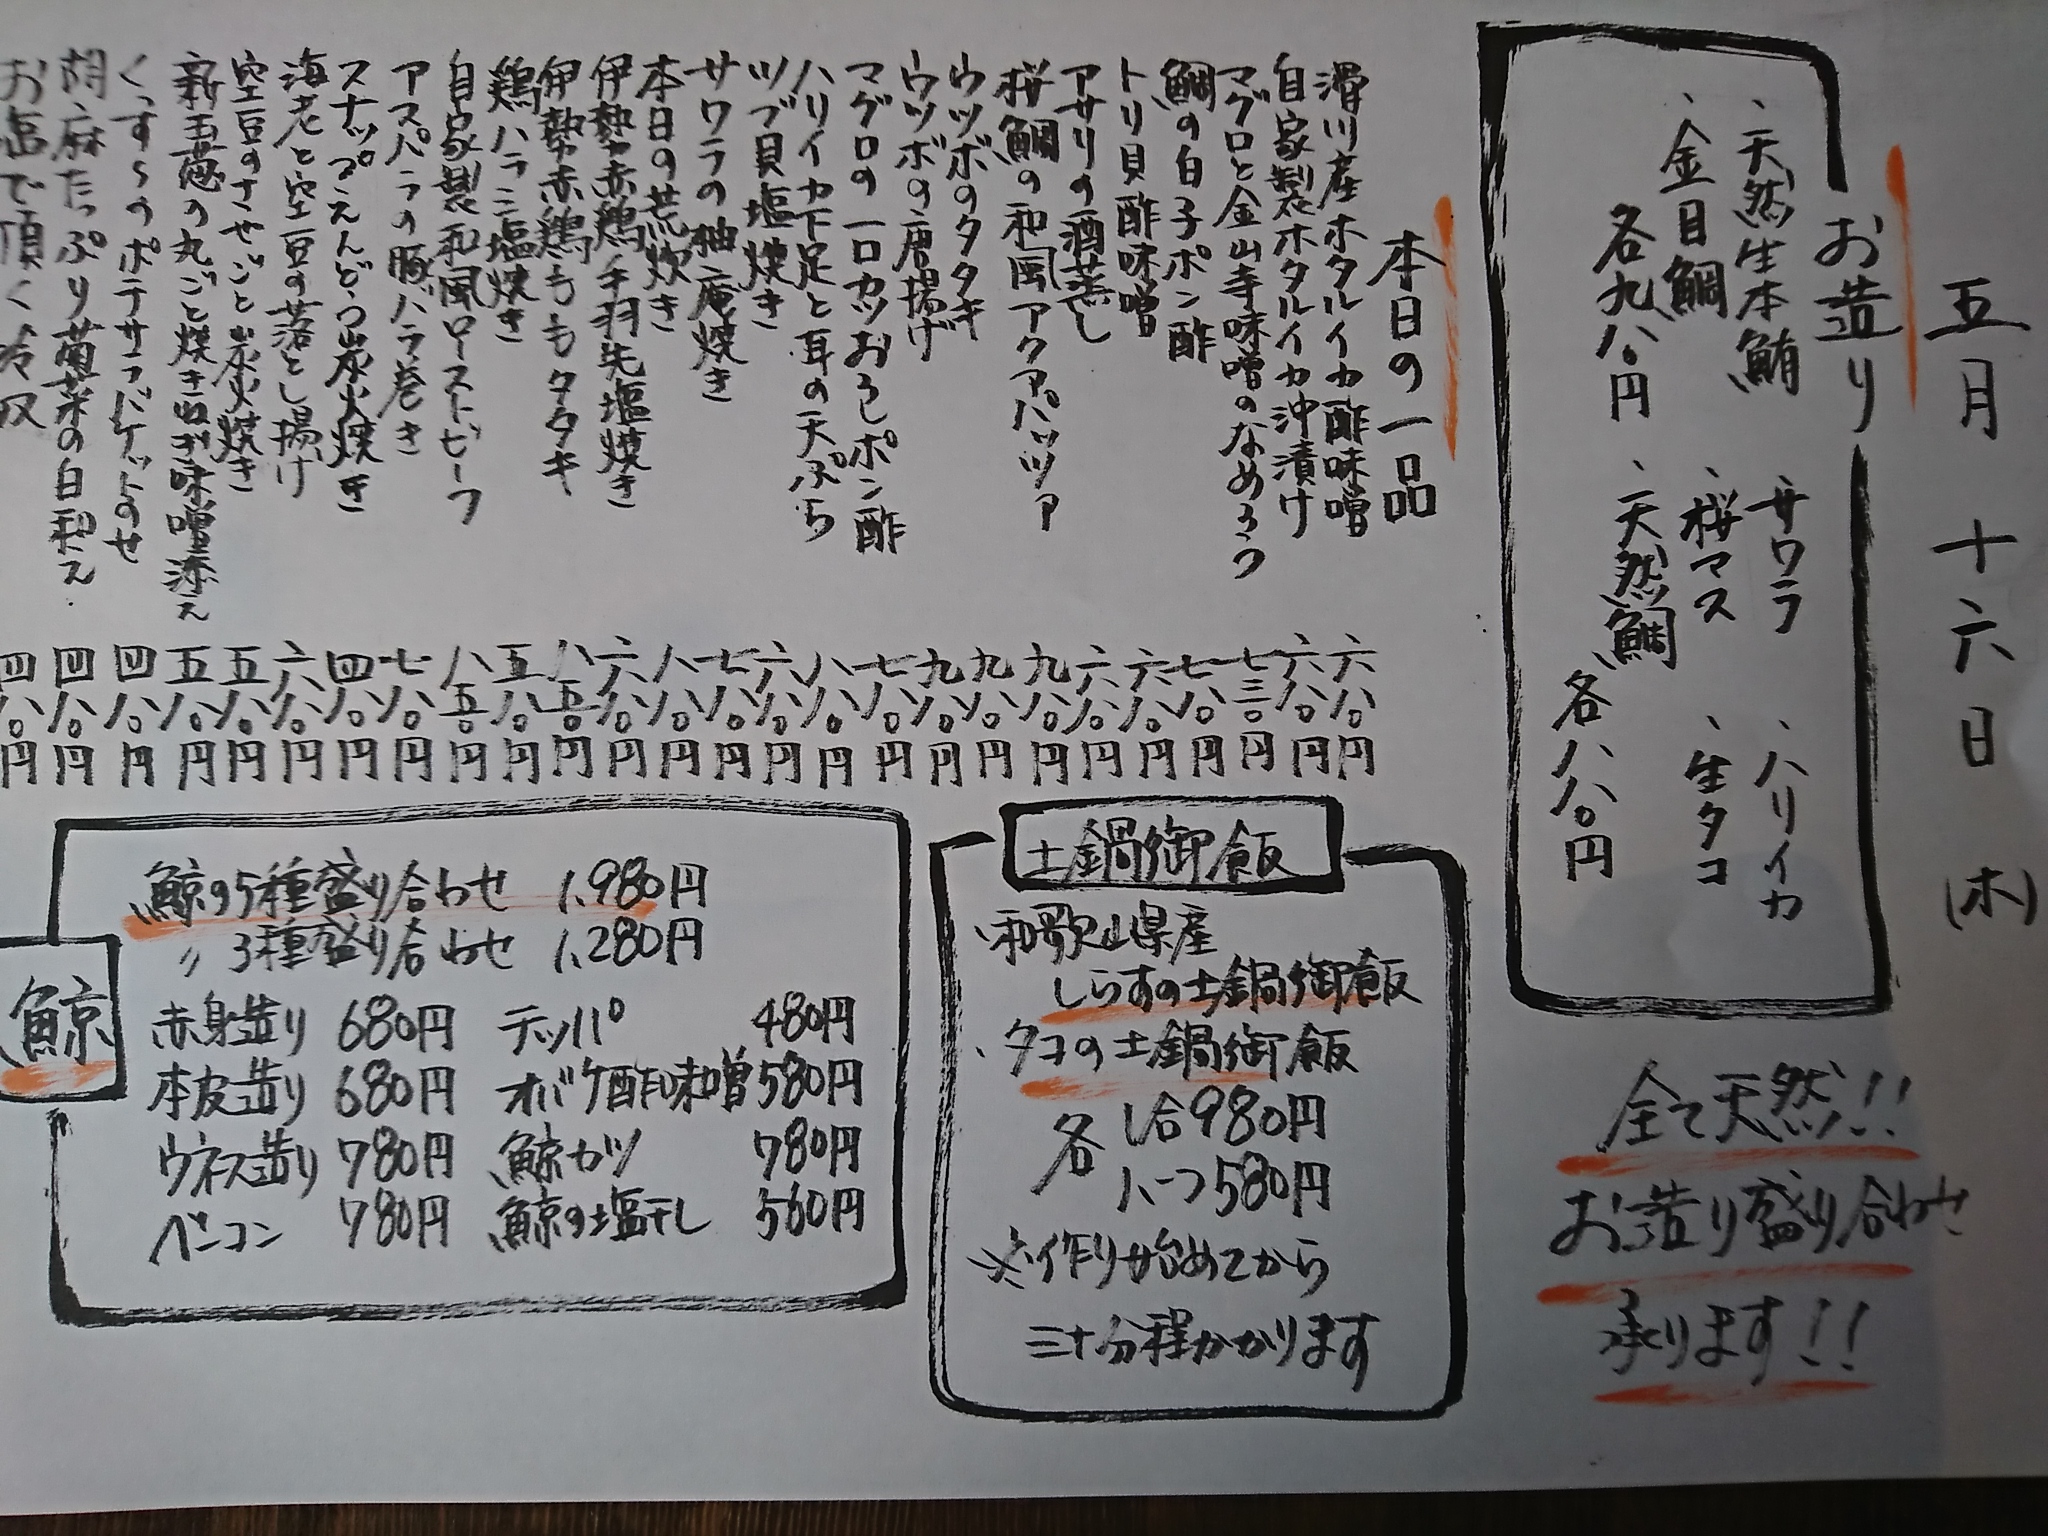 五月十六日(木)
お造り
、天然生本鮪
、金目鯛
各九八〇円
、サワラ
、ハリイカ
、桜マス
、生タコ
、天然鯛
各八八〇円
全て天然!!
お造り盛り合わせ
承ります!!
本日の一品
滑川産ホタルイカ酢味噌 六八〇円
自家製ホタルイカ沖漬け 六八〇円
マグロと金山寺味噌のなめろう 七三〇円
鯛の白子ポン酢 七八〇円
トリ貝酢味噌 六八〇円
アサリの酒蒸し 六八〇円
桜鯛の和風アクアパッツァ 九八〇円
ウツボのタタキ 九八〇円
ウツボの唐揚げ 九八〇円
マグロの一口カツおろしポン酢 七八〇円
ハリイカ下足と耳の天ぷら 八八〇円
ツブ貝塩焼き 六八〇円
サワラの柚庵焼き 七八〇円
本日の荒炊き 八八〇円
伊勢赤鶏手羽先塩焼き 六八〇円
伊勢赤鶏ももタタキ 八五〇円
鶏ハラミ塩焼き 五八〇円
自家製和風ローストビーフ 八五〇円
アスパラの豚バラ巻き 七八〇円
スナップえんどう炭火焼き 四八〇円
海老と空豆の落とし揚げ 六八〇円
空豆のさやごと炭火焼き 五八〇円
新玉葱の丸ごと焼き ねぎ味噌添え 五八〇円
くっす〜のポテサラバケットのせ 四八〇円
胡麻たっぷり菊菜の白和え 四八〇円
お塩で頂く冷奴 四八〇円
土鍋御飯
、和歌山県産
しらすの土鍋御飯
、タコの土鍋御飯
各 1合980円
ハーフ580円
※作り始めてから
三十分程かかります
鯨
鯨の5種盛り合わせ 1,980円
〃 3種盛り合わせ 1,280円
赤身造り 680円 テッパ 480円
本皮造り 680円 オバケ酢味噌 580円
ウネス造り 780円 鯨カツ 780円
ベーコン 780円 鯨の塩干し 560円